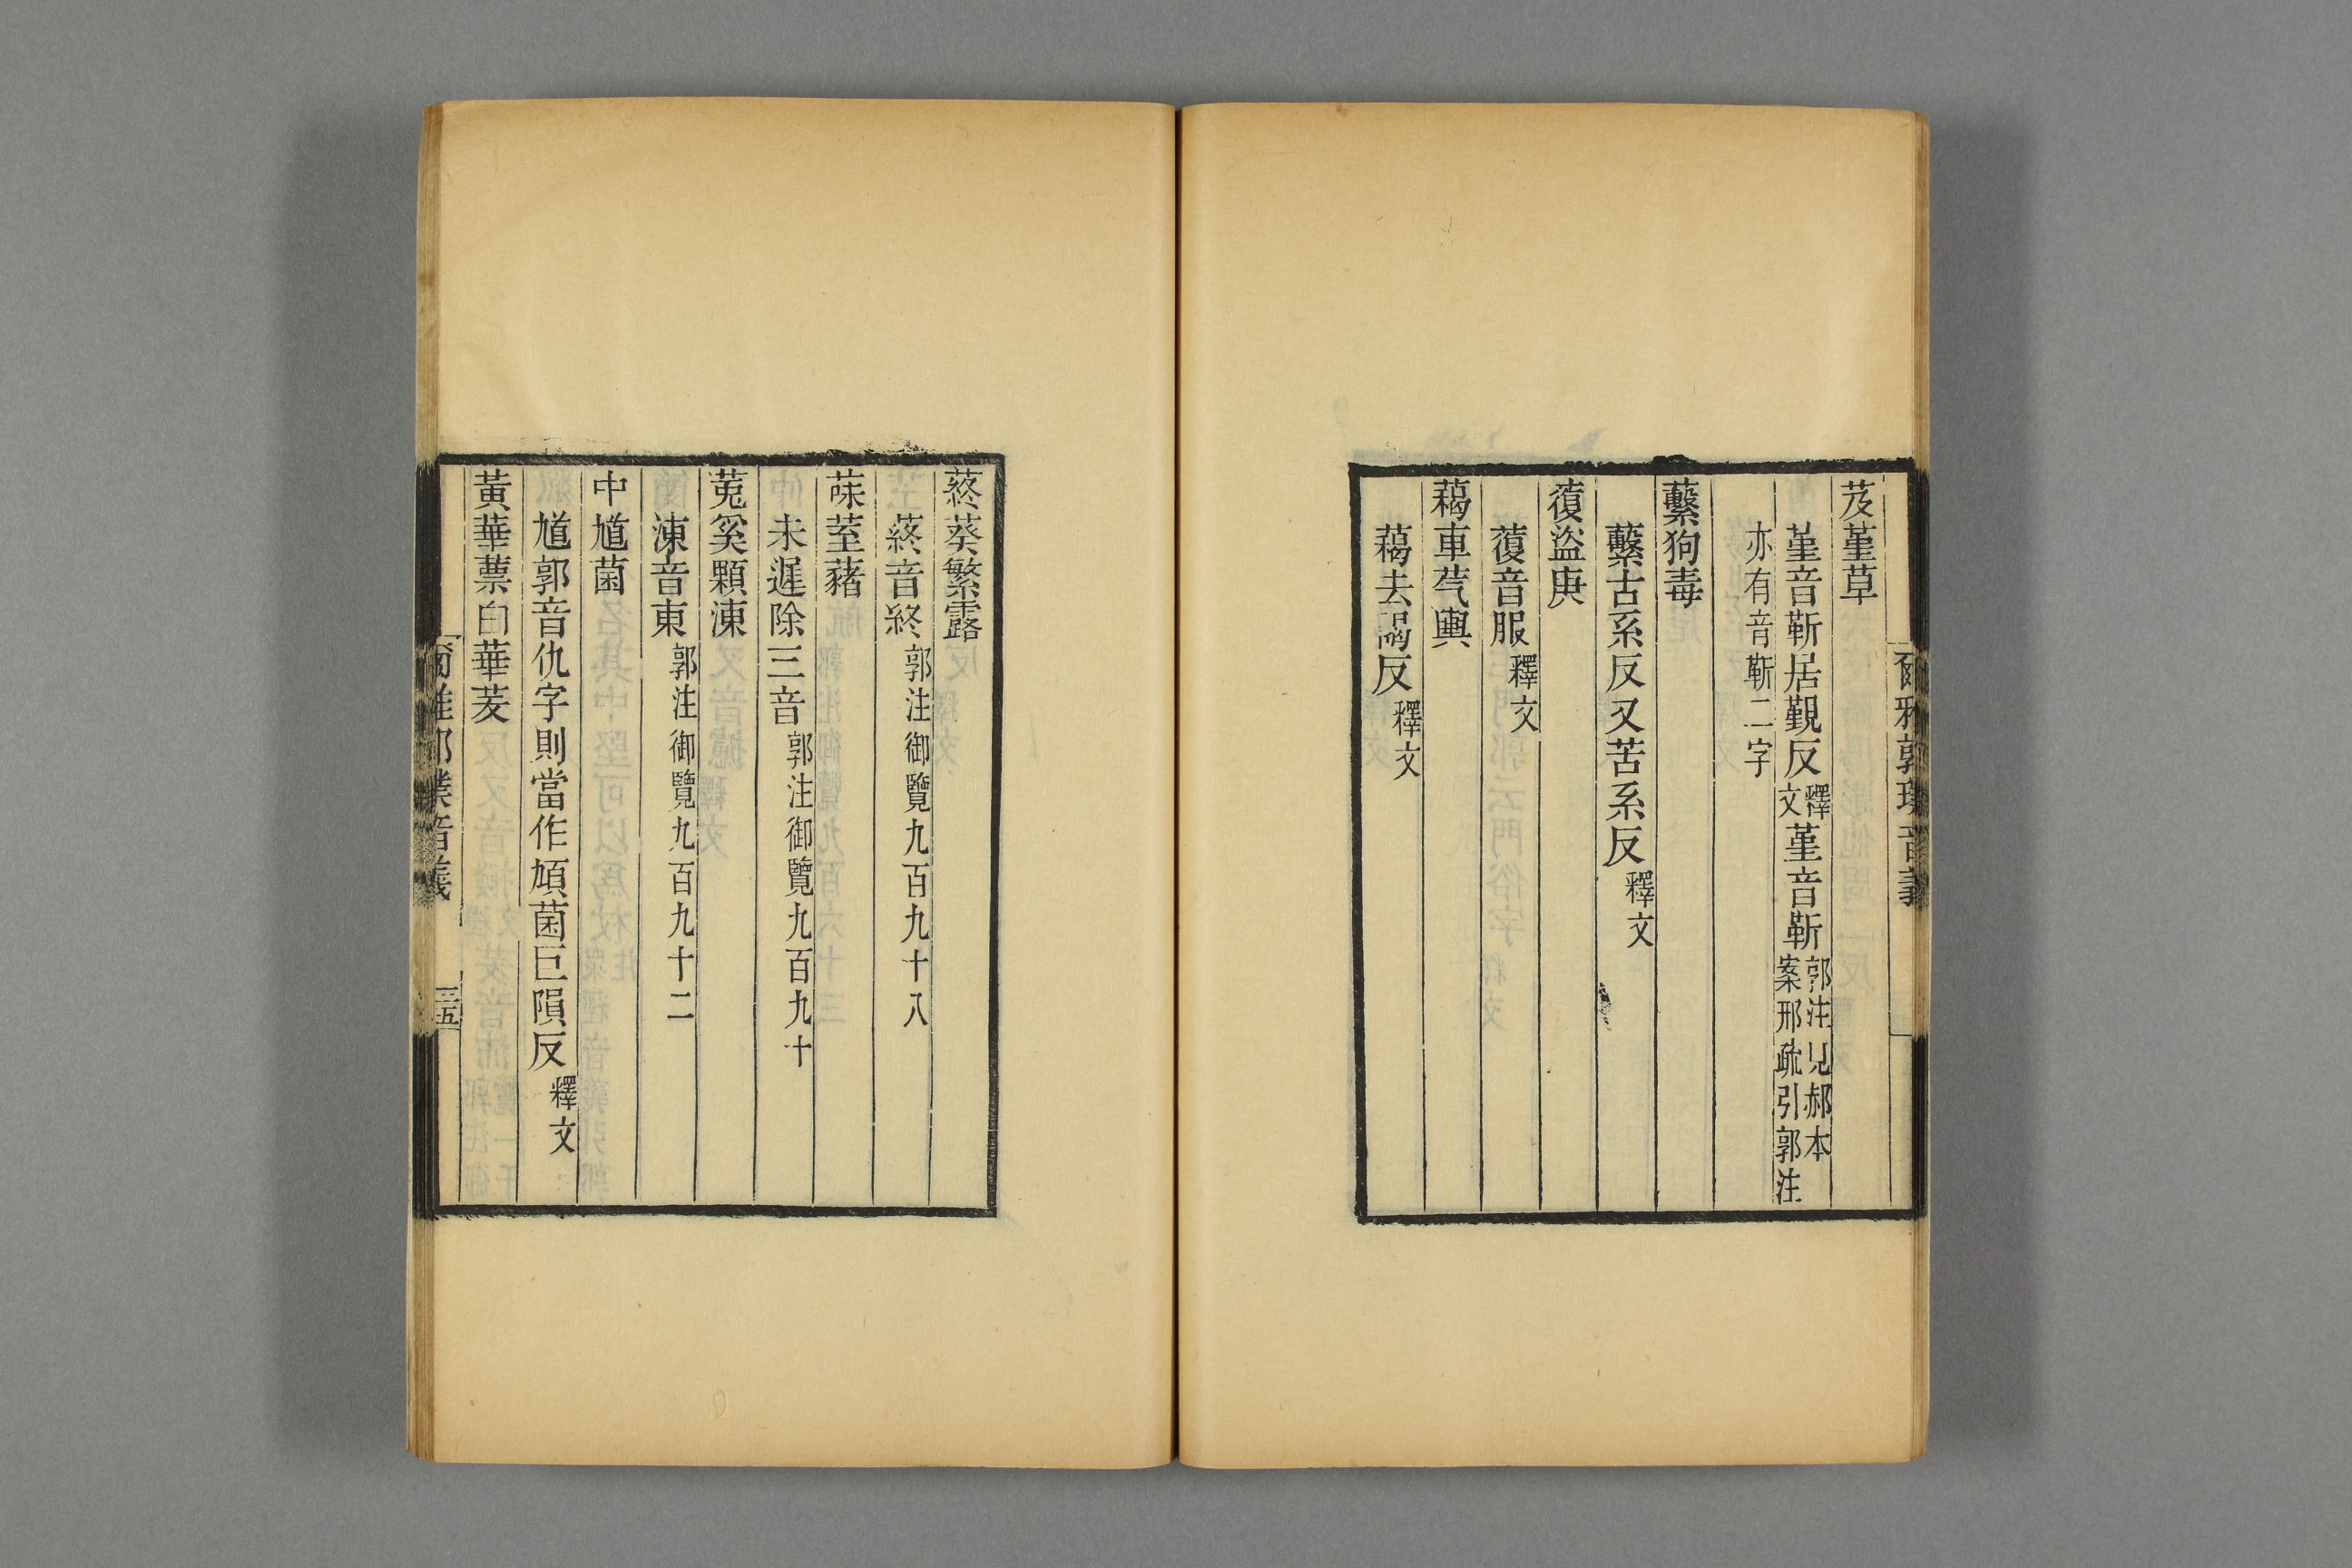 爾雅郭璞音義
芨堇草
堇音靳居覲反釋文堇音靳郭注見郝本案邢疏引郭注
亦有音靳二字
蘻狗毒
蘻古系反又苦系反釋文
蕧盜庚
蕧音服釋文
藒車芞輿
藒去謁反釋文
蔠葵繁露
蔠音終郭注御覽九百九十八
菋荎藸
未遲除三音郭注御覽九百九十
菟奚顆涷
涷音東郭注御覽九百九十二
中馗菌
馗郭音仇字則當作頄菌巨隕反釋文
黃華蔈白華茇
爾雅郭璞音義
三五